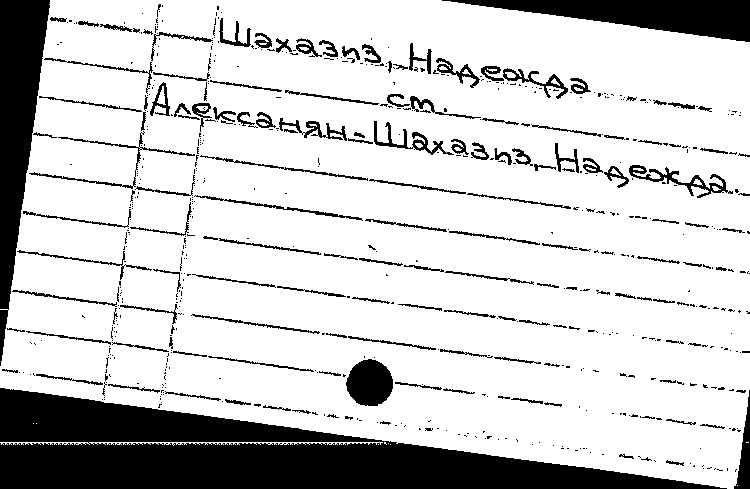 Шахазпз, Надежда
ст.
Алексанян-Шахазпз, Надежда.